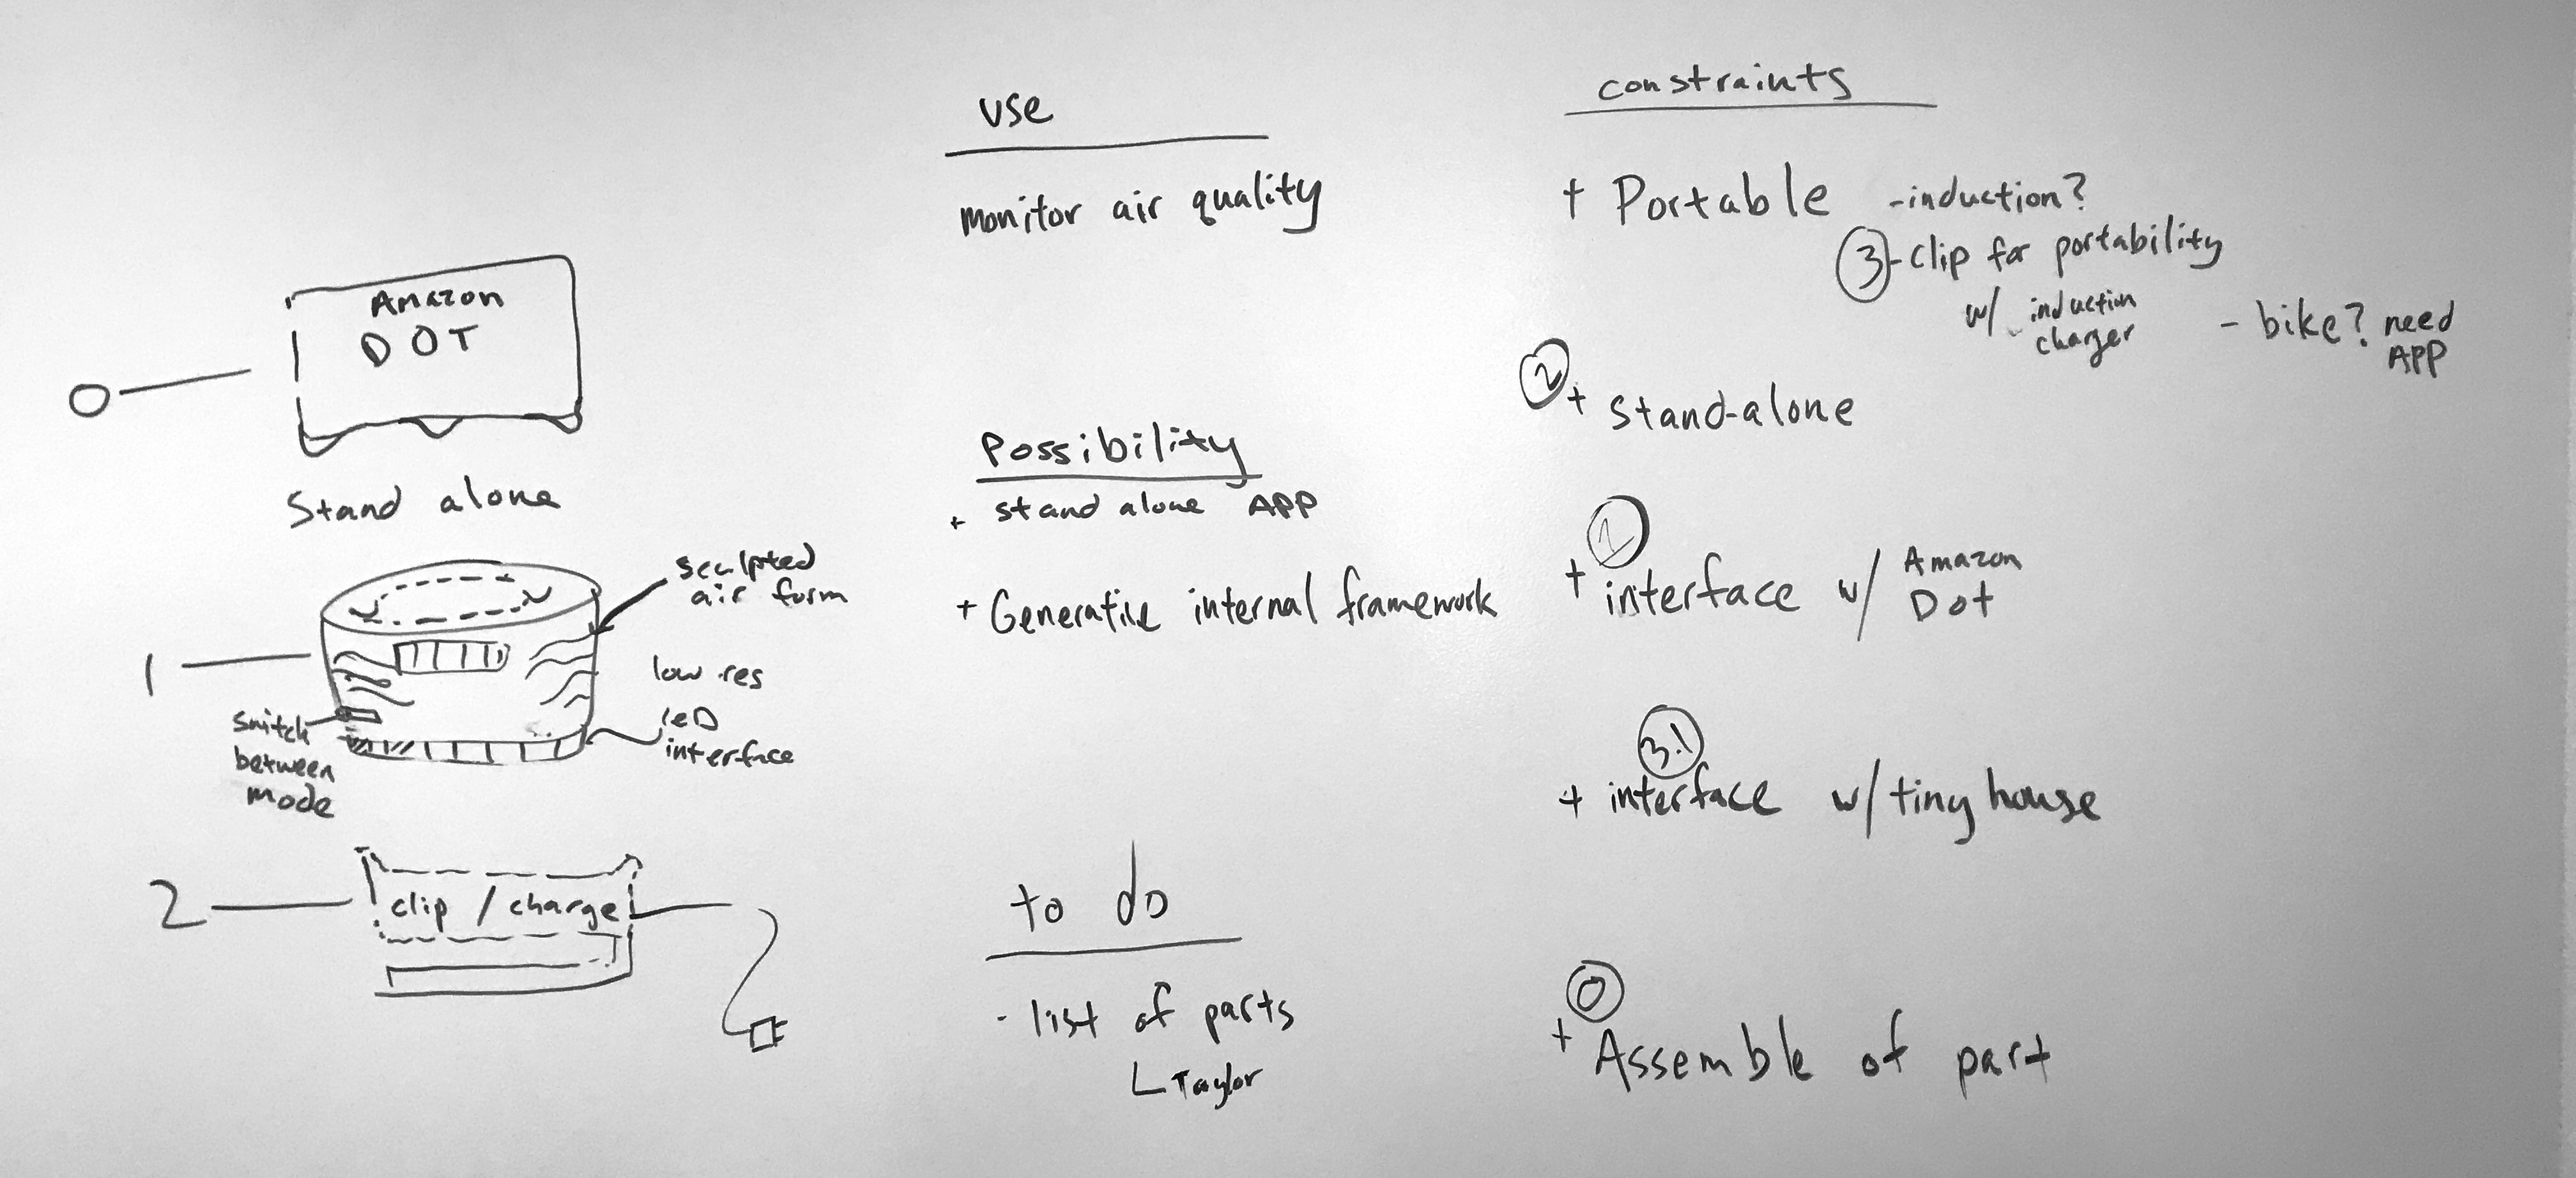 Amazon
DOT
0
Stand alone
sculpted
air form
1
low res
LED
interface
switch
between
mode
2
clip / charge
use
monitor air quality
Possibility
+ stand alone APP
+ Generative internal framework
to do
- list of parts
Taylor
constraints
+ Portable
-induction?
3 -clip for portability
w/ induction
charger
- bike? need
APP
2
+ stand-alone
1
+ interface w/ Amazon
Dot
3.1
+ interface w/ tiny house
0
+ Assemble of part